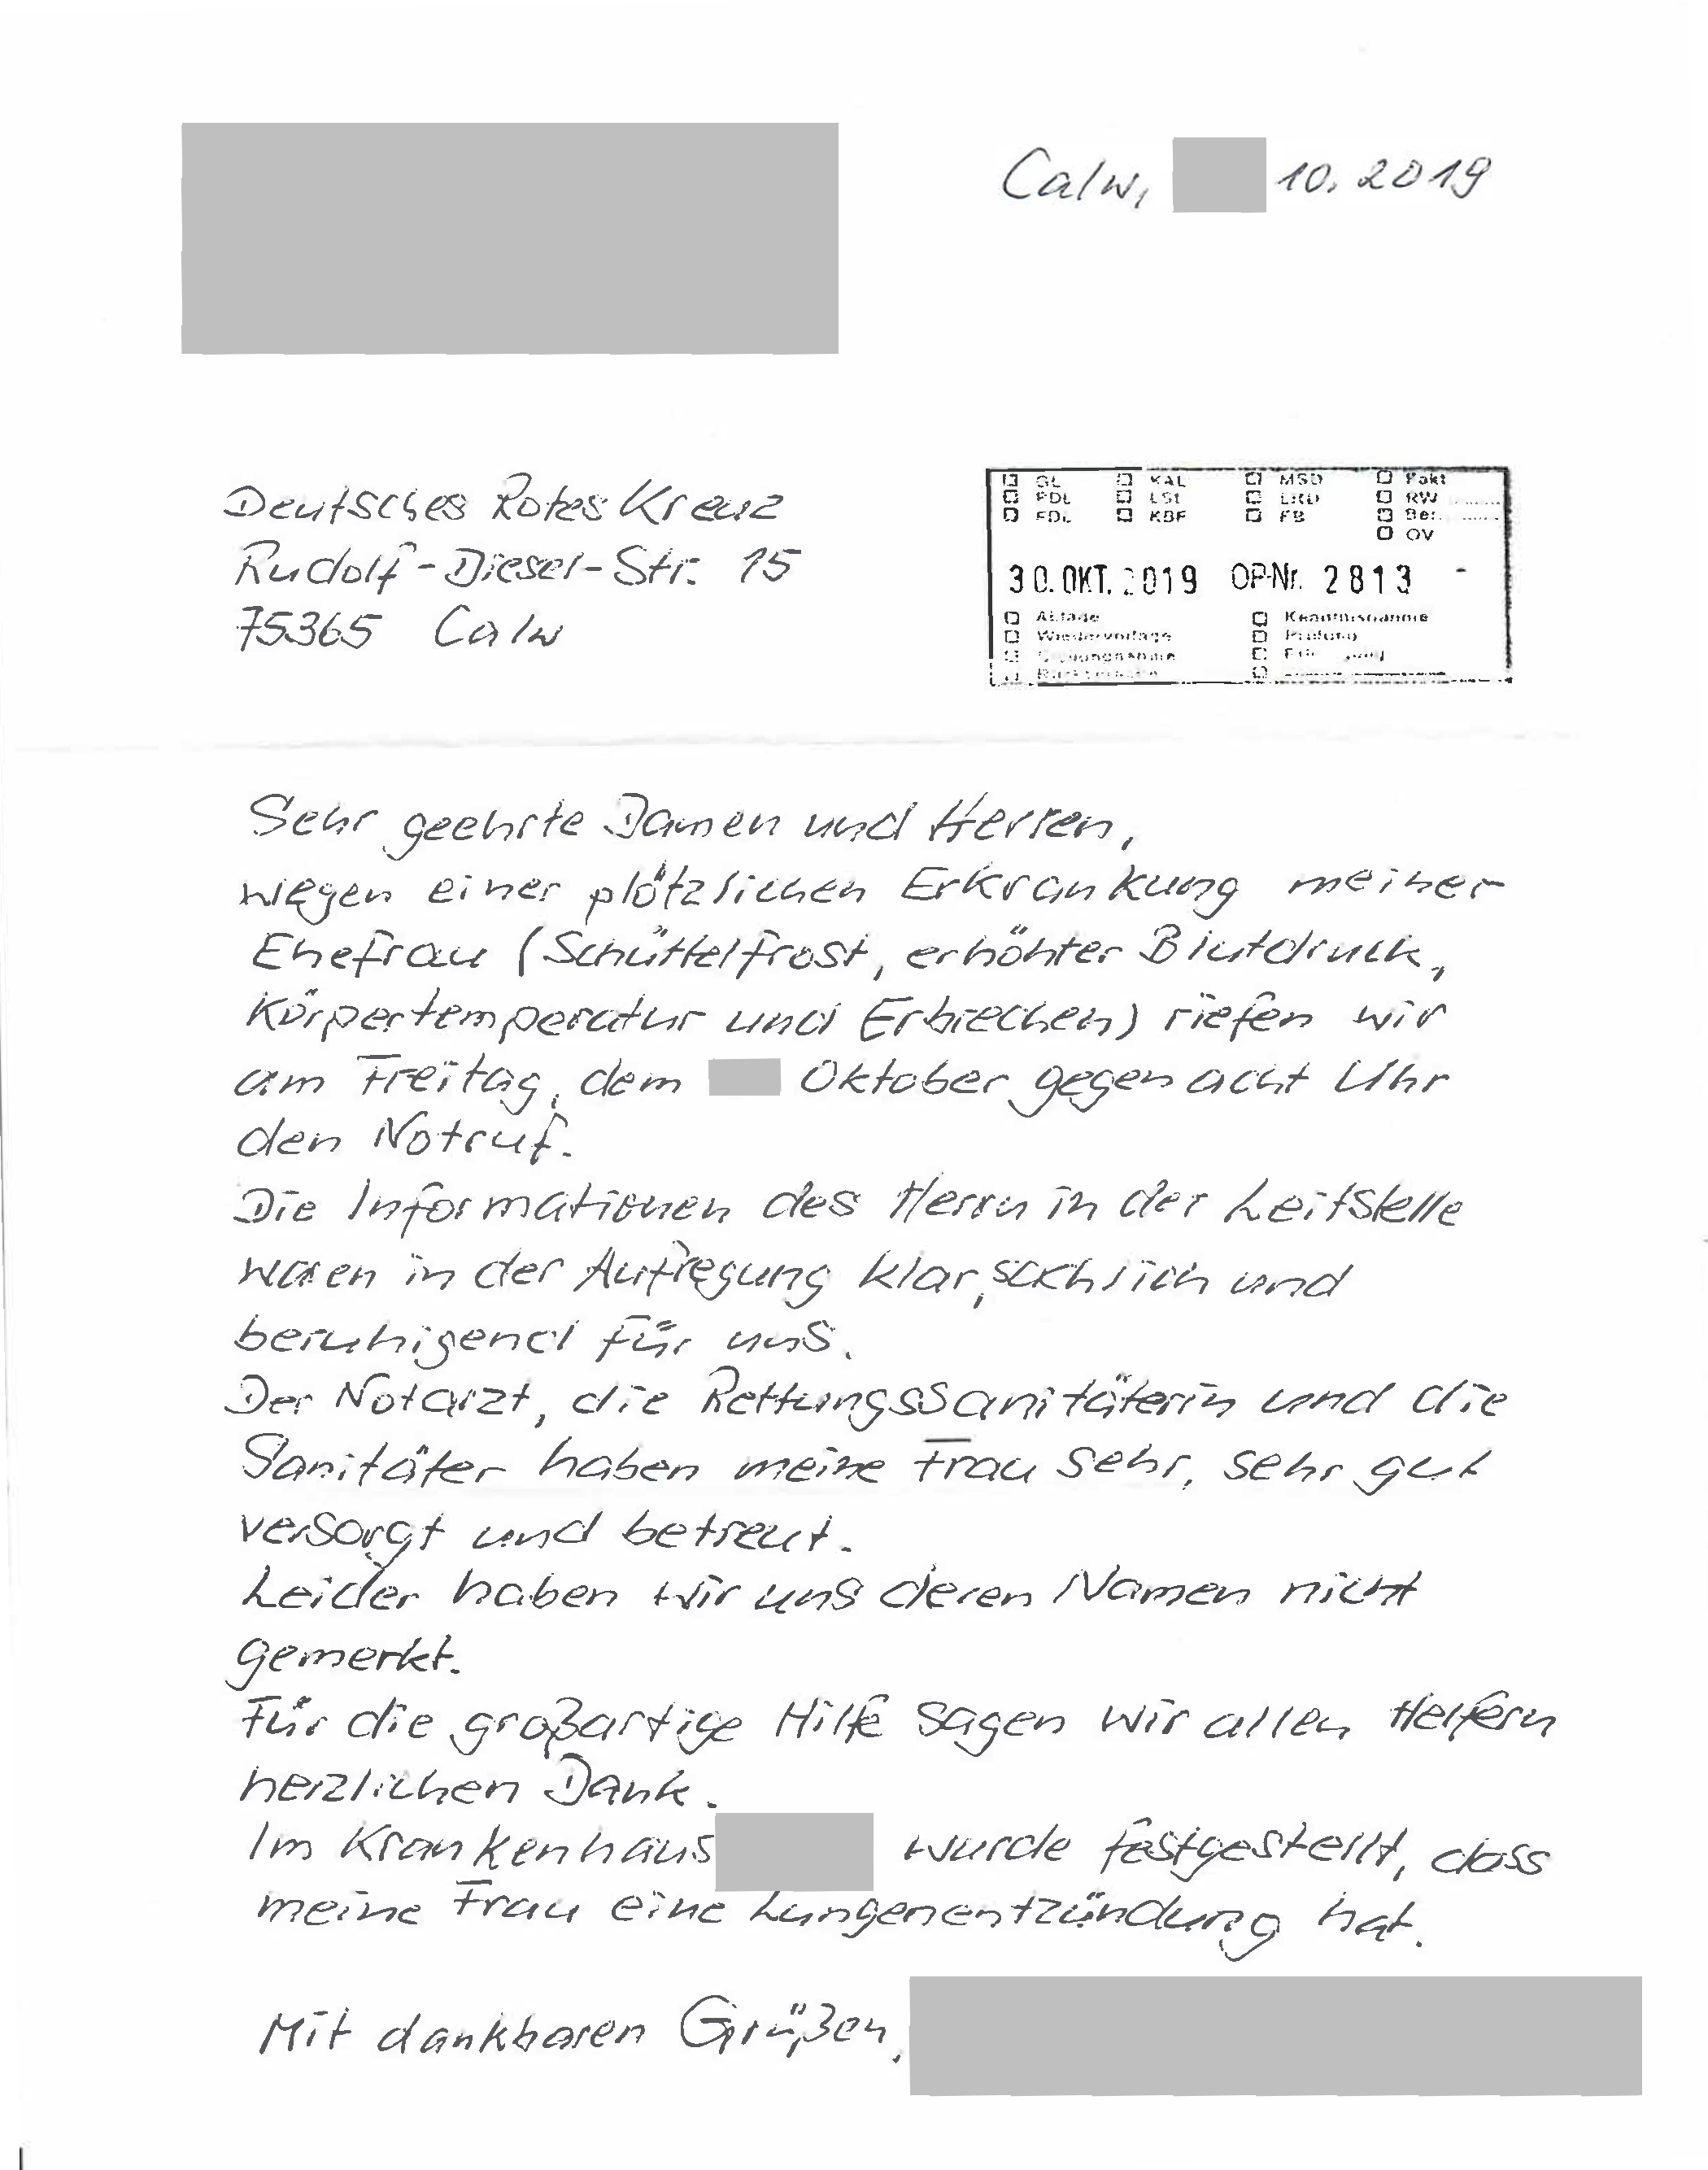 Calw, 10. 2019
Deutsches Rotes Kreuz
Rudolf-Diesel-Str. 15
75365 Calw
GL KAL MSD Fakt
PDL LSt LRD RW
FDL KBF FB Ber.
OV
30. OKT. 2019 OP-Nr. 2813
Ablage Kenntnisnahme
Wiedervorlage Prüfung
Stellungnahme
Rücksprache
Sehr geehrte Damen und Herren,
wegen einer plötzlichen Erkrankung meiner
Ehefrau (Schüttelfrost, erhöhter Blutdruck,
Körpertemperatur und Erbrechen) riefen wir
am Freitag, dem Oktober gegen acht Uhr
den Notruf.
Die Informationen des Herrn in der Leitstelle
waren in der Aufregung klar, sachlich und
beruhigend für uns.
Der Notarzt, die Rettungssanitäterin und die
Sanitäter haben meine Frau sehr, sehr gut
versorgt und betreut.
Leider haben wir uns deren Namen nicht
gemerkt.
Für die großartige Hilfe sagen wir allen Helfern
herzlichen Dank.
Im Krankenhaus wurde festgestellt, dass
meine Frau eine Lungenentzündung hat.
Mit dankbaren Grüßen,